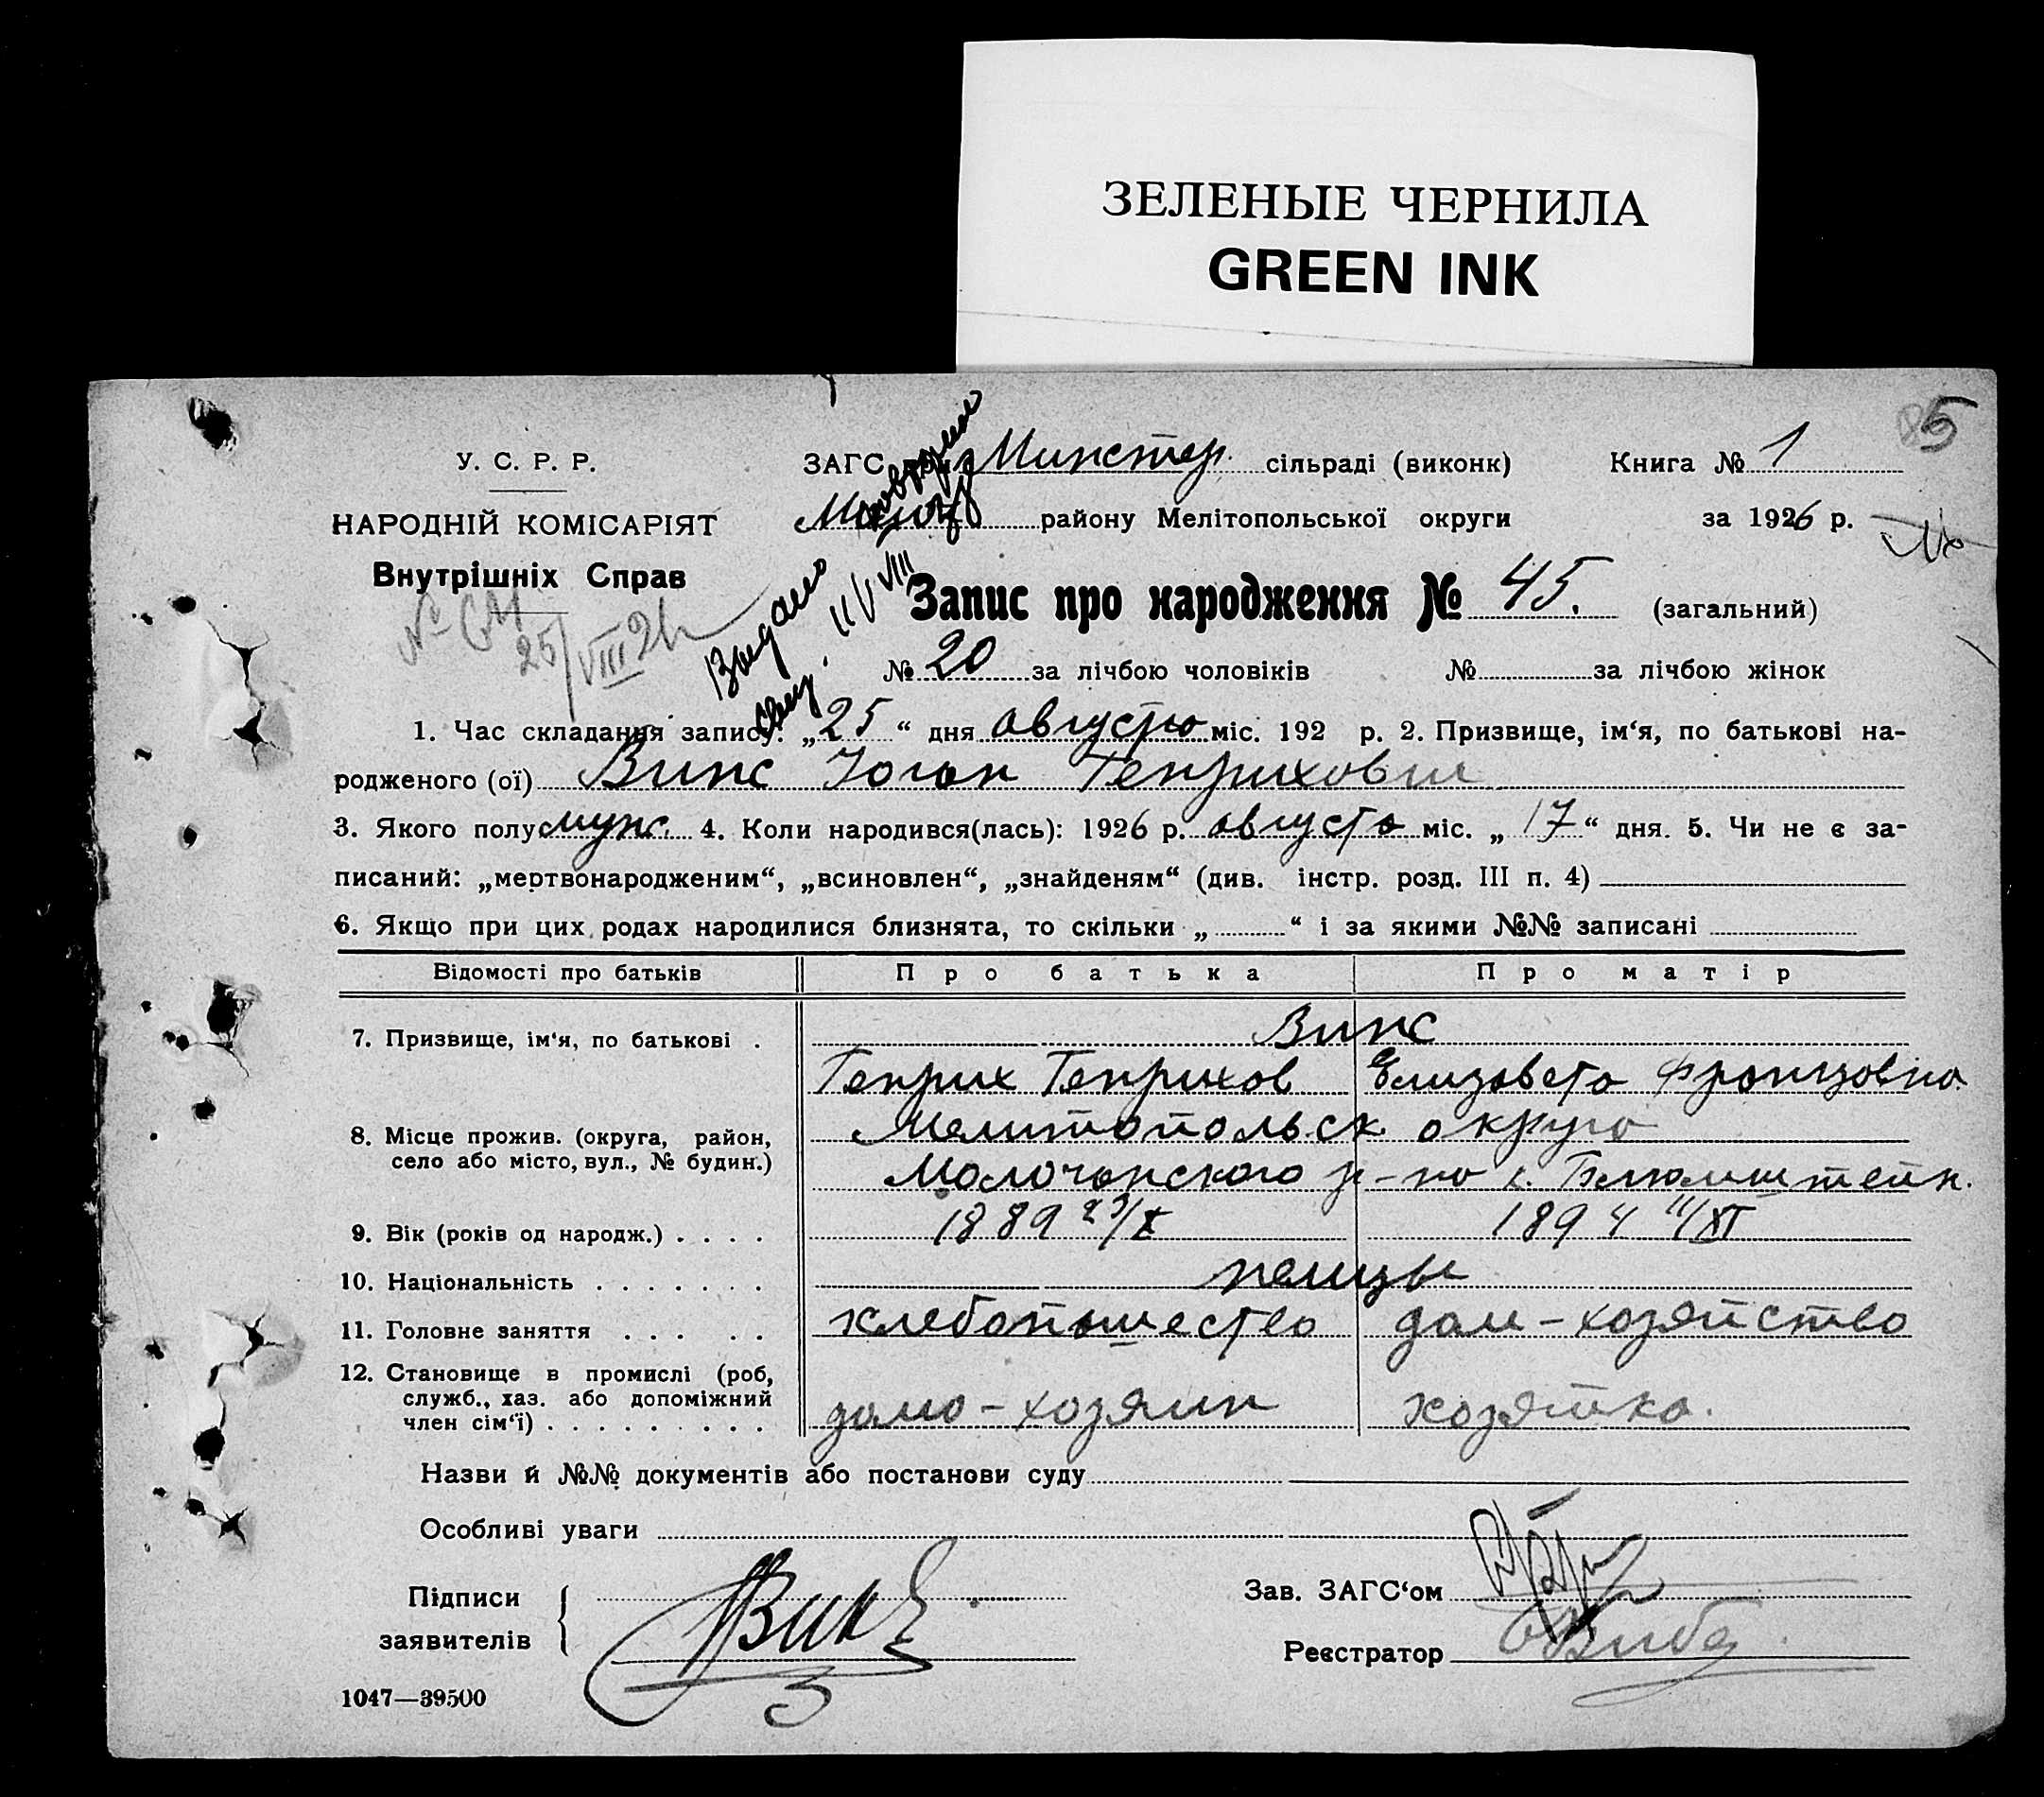 ЗЕЛЕНЫЕ ЧЕРНИЛА
GREEN INK
85
У. С. Р. Р.
НАРОДНІЙ КОМІСАРІЯТ
Внутрішніх Справ
25/VIII 26
ЗАГС при Минстер. сільраді (виконк) Книга № 1
району Мелітопольської округи за 1926 р.
Выдано
11/VIII
Запис про народження № 45. (загальний)
№ 20 за лічбою чоловіків № за лічбою жінок
1. Час складання запису: „25“ дня августа міс. 192 р. 2. Призвище, ім‘я, по батькові на-
родженого (ої) Винс Иоган Генрихович
3. Якого полу муж. 4. Коли народився(лась): 1926 р. августа міс. „17“ дня. 5. Чи не є за-
писаний: „мертвонародженим“, „всиновлен“, „знайденям“ (див. інстр. розд. III п. 4)
6. Якщо при цих родах народилися близнята, то скільки „ “ і за якими №№ записані
Відомості про батьків Про батька Про матір
7. Призвище, ім‘я, по батькові . Винс
Генрих Генрихов Елизавета Францовна
8. Місце прожив. (округа, район, село або місто, вул., № будин.) Мелитопольск округа
Молочанского р-на с. Блюмштейн.
9. Вік (років од народж.) . . . . 1889 23/X 1894 11/XI
10. Національність . . . . . . . немцы
11. Головне заняття . . . . . хлебопашество дом-хозяйство
12. Становище в промислі (роб, служб., хаз. або допоміжний член сім‘ї) . . . . . . . . . домо-хозяин хозяйка.
Назви й №№ документів або постанови суду
Особливі уваги
Підписи заявителів Винс
Зав. ЗАГС‘ом
Реєстратор
1047—39500